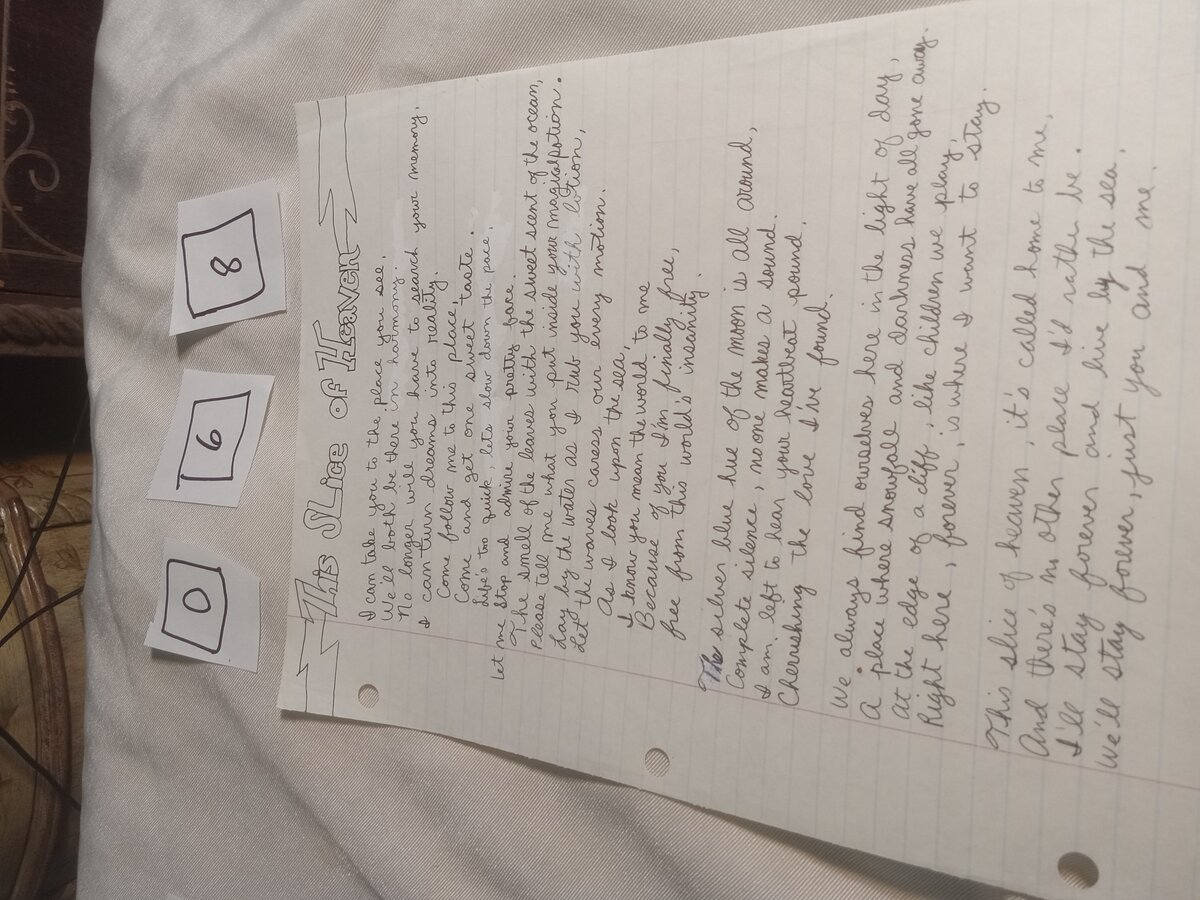 0
6
8
This Slice of Heaven
I can take you to the place you see,
We'll both be there in harmony.
No longer will you have to search your memory,
I can turn dreams into reality.
Come follow me to this place,
Come and get one sweet taste.
Life's too quick, lets slow down the pace,
let me stop and admire your pretty face.
The smell of the leaves with the sweet scent of the ocean,
Please tell me what you put inside your magical potion.
Lay by the water as I rub you with lotion,
Let the waves caress our every motion.
As I look upon the sea,
I know you mean the world to me
Because of you I'm finally free,
free from this world's insanity.
The silver blue hue of the moon is all around,
Complete silence, no one makes a sound.
I am left to hear your heartbeat pound.
Cherrishing the love I've found.
We always find ourselves here in the light of day,
A place where snowfall and darkness have all gone away.
At the edge of a cliff, like children we play,
Right here, forever, is where I want to stay.
This slice of heaven, it's called home to me,
And there's no other place I'd rather be.
I'll stay forever and live by the sea,
We'll stay forever, just you and me.